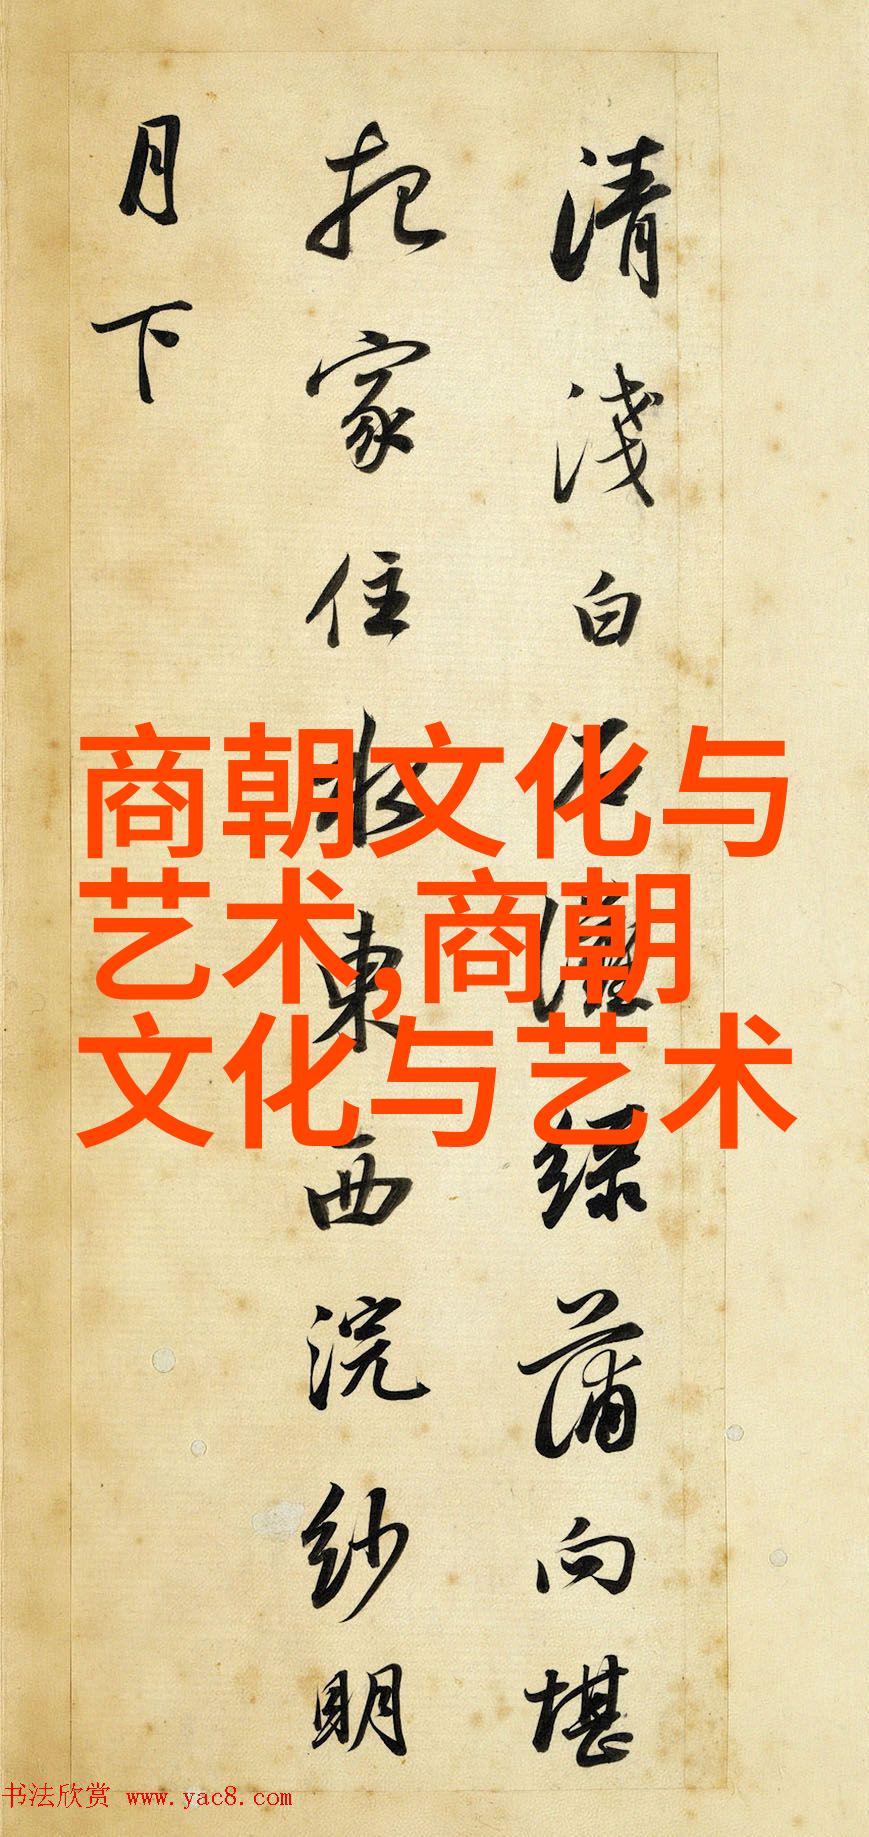 清淺白石灘綠蒲向堪
把家住水東西浣紗明
月下
商朝文化与
艺术,商朝
文化与艺术
书法欣赏 www.yac8.com